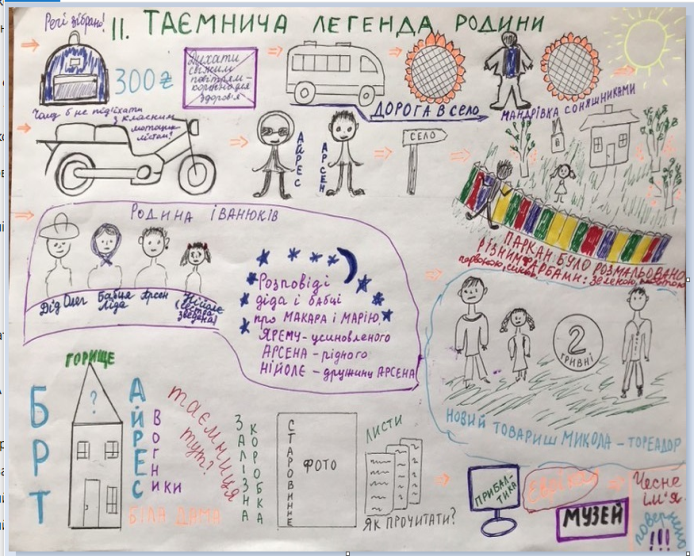 Речі зібрано!
II. ТАЄМНИЧА ЛЕГЕНДА РОДИНИ
300 ₴
Дихати
свіжим
повітрям –
корисно для
здоров'я
ДОРОГА В СЕЛО
МАНДРІВКА СОНЯШНИКАМИ
Чому б не під'їхати
з класним
мотоцик-
лістом?
АЙРЕС
АРСЕН
СЕЛО
ПАРКАН БУЛО РОЗМАЛЬОВАНО
РІЗНИМИ ФАРБАМИ:
РОДИНА ІВАНЮКІВ
Дід Олег
Бабця
Ліда
Арсен
Нійоле
Розповіді
діда і бабці
про МАКАРА і МАРІЮ,
ЯРЕМУ – усиновленого
АРСЕНА – рідного
НІЙОЛЕ – дружину АРСЕНА
2
ГРИВНІ
НОВИЙ ТОВАРИШ МИКОЛА – ТОРЕАДОР
ГОРИЩЕ
?
БРТ
АЙРЕС
ВОГНИКИ
таємниця
тут?
БІЛА ДАМА
ЗАЛІЗНА
КОРОБКА
СТАРОВИННЕ
ФОТО
ЛИСТИ
ЯК ПРОЧИТАТИ?
ПРИБАЛ-
ТИКА
МУЗЕЙ
Чесне
ім'я
повернено
!!!